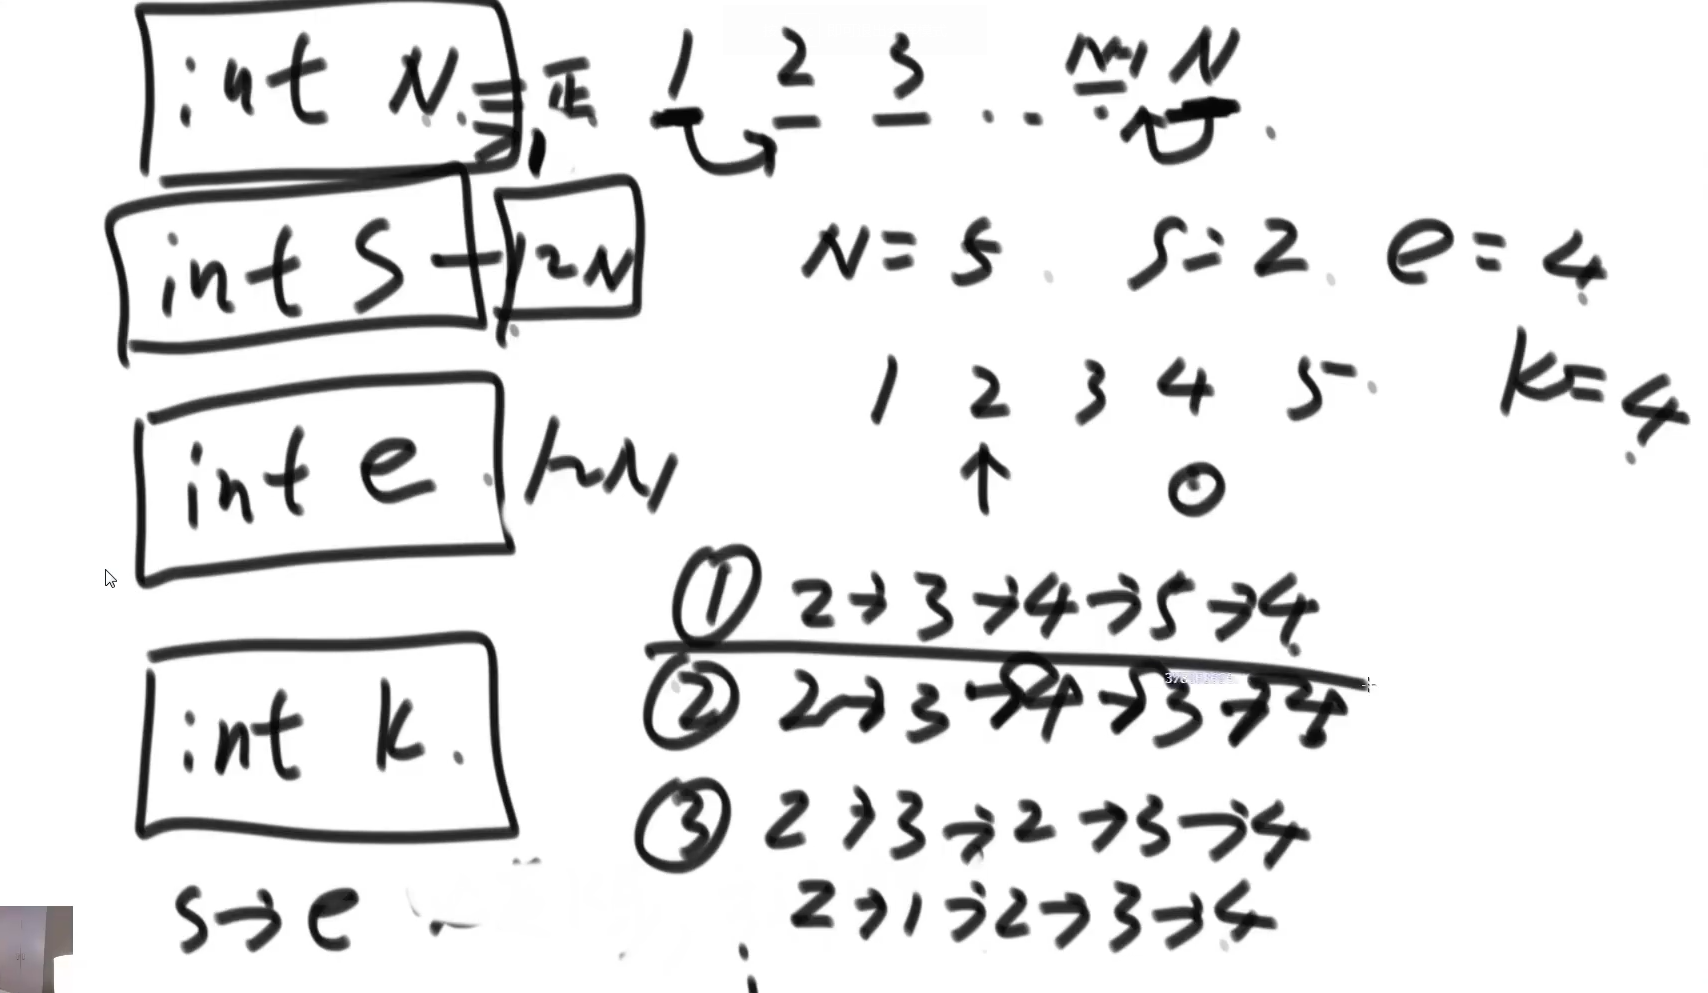 int N. 正 1 2 3 ... N-1 N
≥1
int S - 1~N
N = 5 S = 2 e = 4
int e 1~N
1 2 3 4 5 k = 4
↑ O
① 2→3→4→5→4
② 2→3→4→3→4
int k.
③ 2→3→2→3→4
S→e 2→1→2→3→4